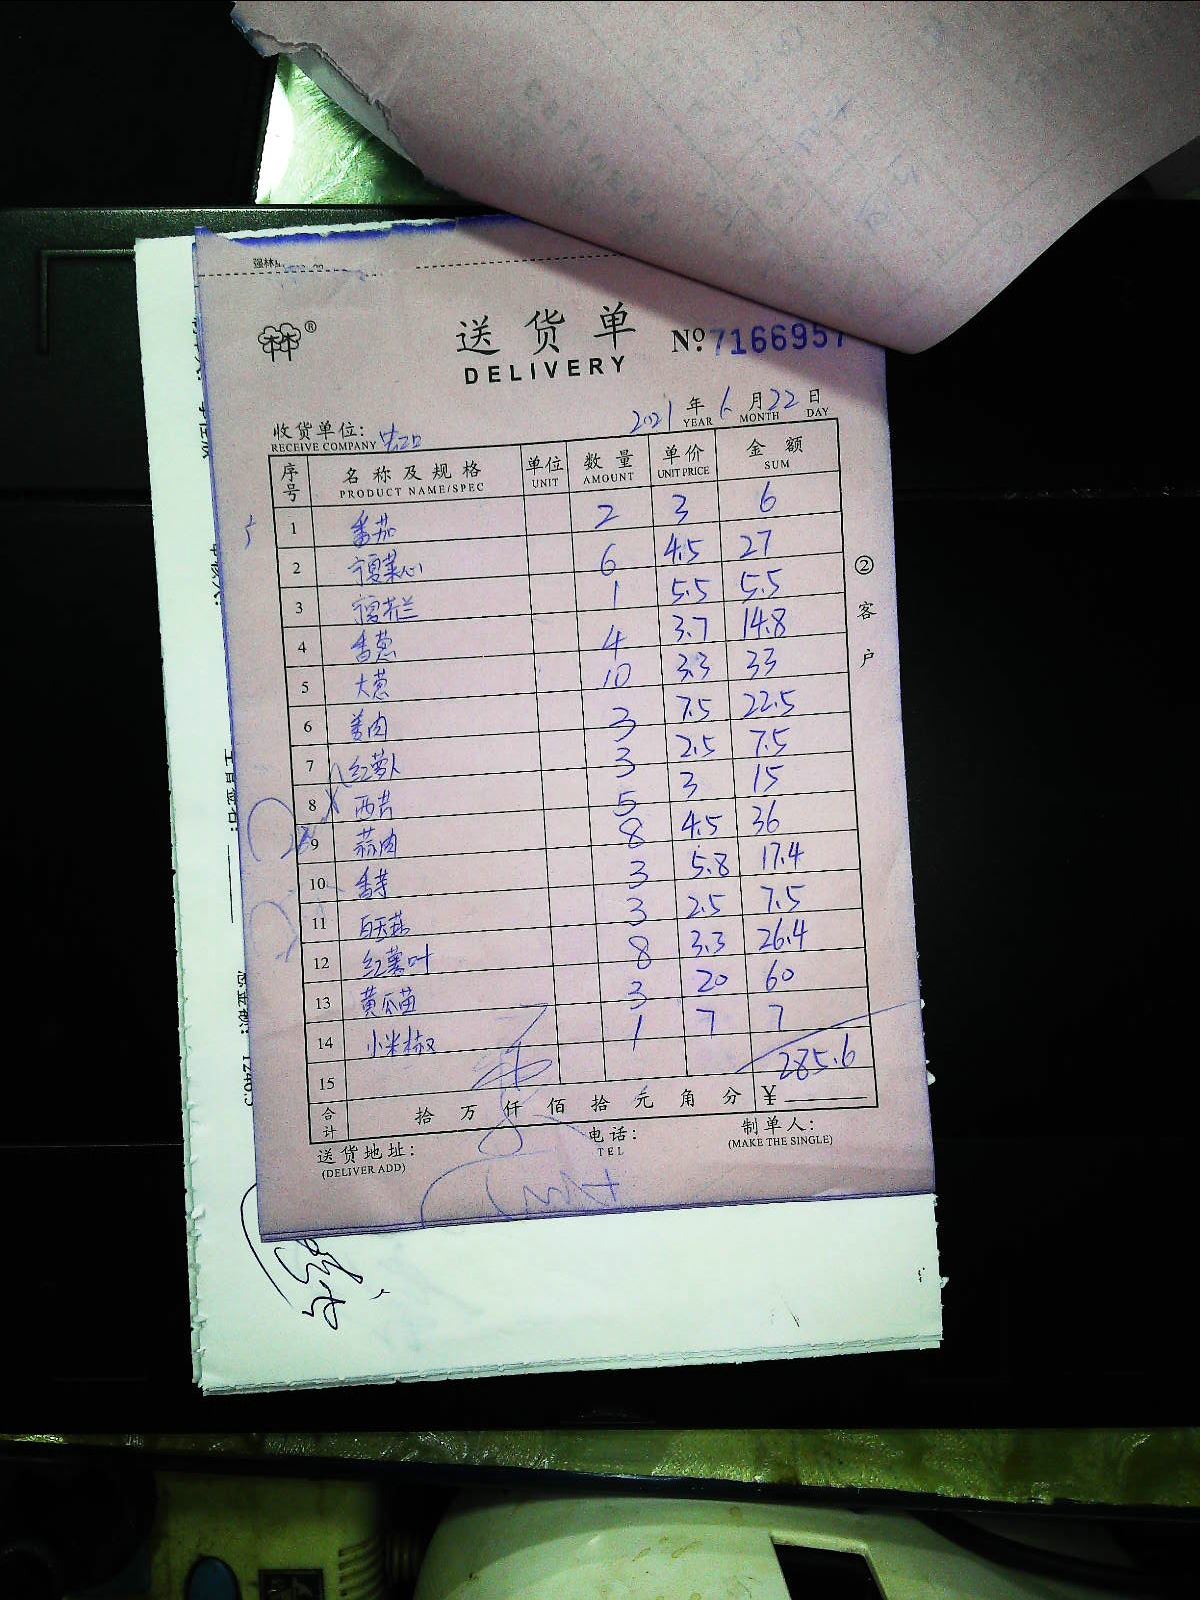 送货单
DELIVERY
No: 7166957
2021 年 6 月 22 日
YEAR MONTH DAY
收货单位:
RECEIVE COMPANY
序号 名称及规格 单位 数量 单价 金额
PRODUCT NAME/SPEC UNIT AMOUNT UNIT PRICE SUM
1 番茄 2 3 6
2 宁夏菜心 6 4.5 27
3 宁夏芥兰 1 5.5 5.5
4 香葱 4 3.7 14.8
5 大葱 10 3.3 33
6 姜肉 3 7.5 22.5
7 红萝卜 3 2.5 7.5
8 西芹 5 3 15
9 蒜肉 8 4.5 36
10 香芋 3 5.8 17.4
11 3 2.5 7.5
12 红薯叶 8 3.3 26.4
13 黄瓜苗 3 20 60
14 小米椒 1 7 7
15 285.6
合计 拾 万 仟 佰 拾 元 角 分 ¥
送货地址: 电话: 制单人:
(DELIVER ADD) TEL (MAKE THE SINGLE)
②客户